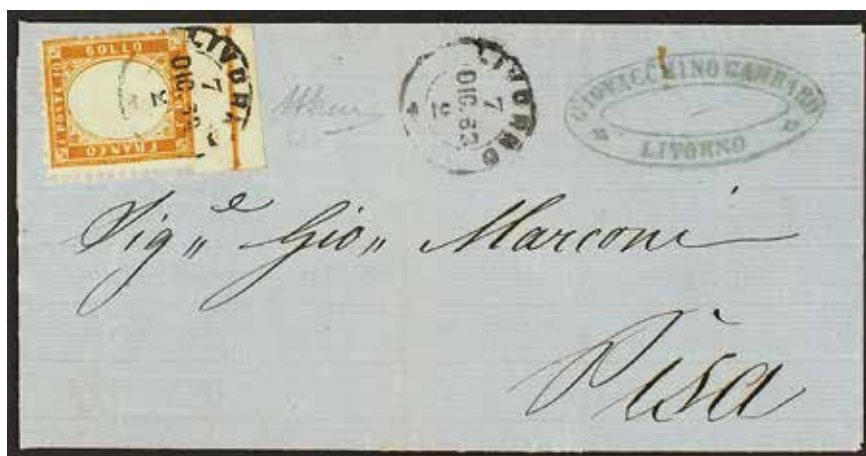 BOLLO
FRANCO
LIVORNO
7
DIC. 62
LIVORNO
7
DIC. 62
GIOVACCHINO
LIVORNO
Sig„e Gio„ Marconi
Pisa